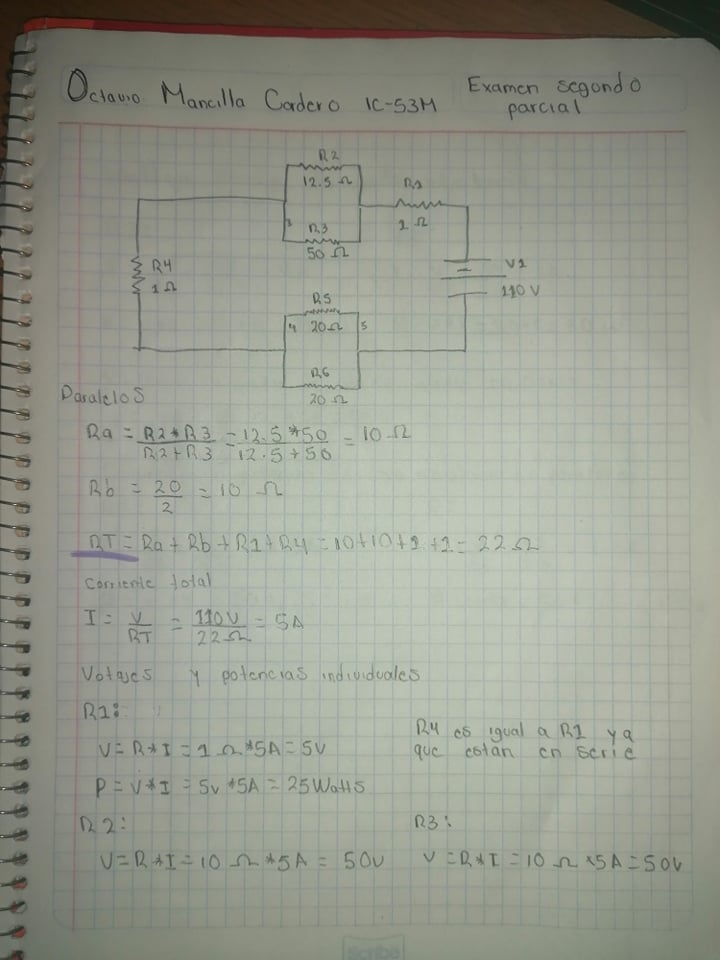 Octavio Mancilla Cordero IC-53M
Examen segondo
parcial
R2
12.5 Ω
R1
1 Ω
3
R3
50 Ω
R4
1 Ω
V1
110 V
R5
4 20 Ω 5
R6
20 Ω
Paralelos
Ra = R2*R3/R2+R3 = 12.5*50/12.5+50 = 10 Ω
Rb = 20/2 = 10 Ω
RT = Ra + Rb + R1 + R4 = 10+10+1+1 = 22 Ω
Corriente total
I = V/RT = 110V/22Ω = 5A
Votajes y potencias individuales
R1:
V = R*I = 1 Ω*5A = 5V
P = V*I = 5v*5A = 25Watts
R4 es igual a R1 ya
que estan en serie
R2:
V=R*I=10 Ω*5A = 50v
R3:
V=R*I=10 Ω*5A=50v
Scribe